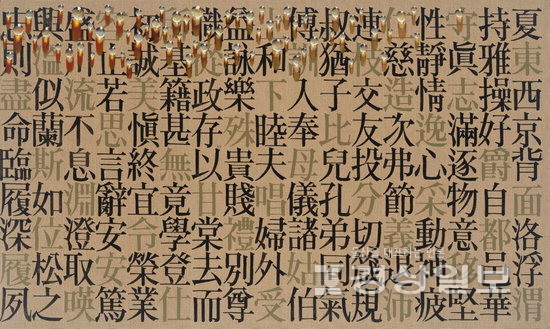 夏東西京背面洛浮渭
持雅操好爵自都邑華
守眞志滿逐物意移堅
性靜情逸心采動神疲
仁慈造次弗節義廉沛
連枝交友投分切箴規
叔猶子比兒孔弟同氣
傅訓入奉母儀諸姑伯
和下睦夫唱婦外受
益詠樂殊貴賤禮別尊
職從政存以甘棠去而
基籍甚無竟學登仕
初誠美愼終宜令榮業
止若思言辭安安篤
川流不息淵澄取映
興溫似蘭斯如松之
忠則盡命臨履深履夙
경상일보